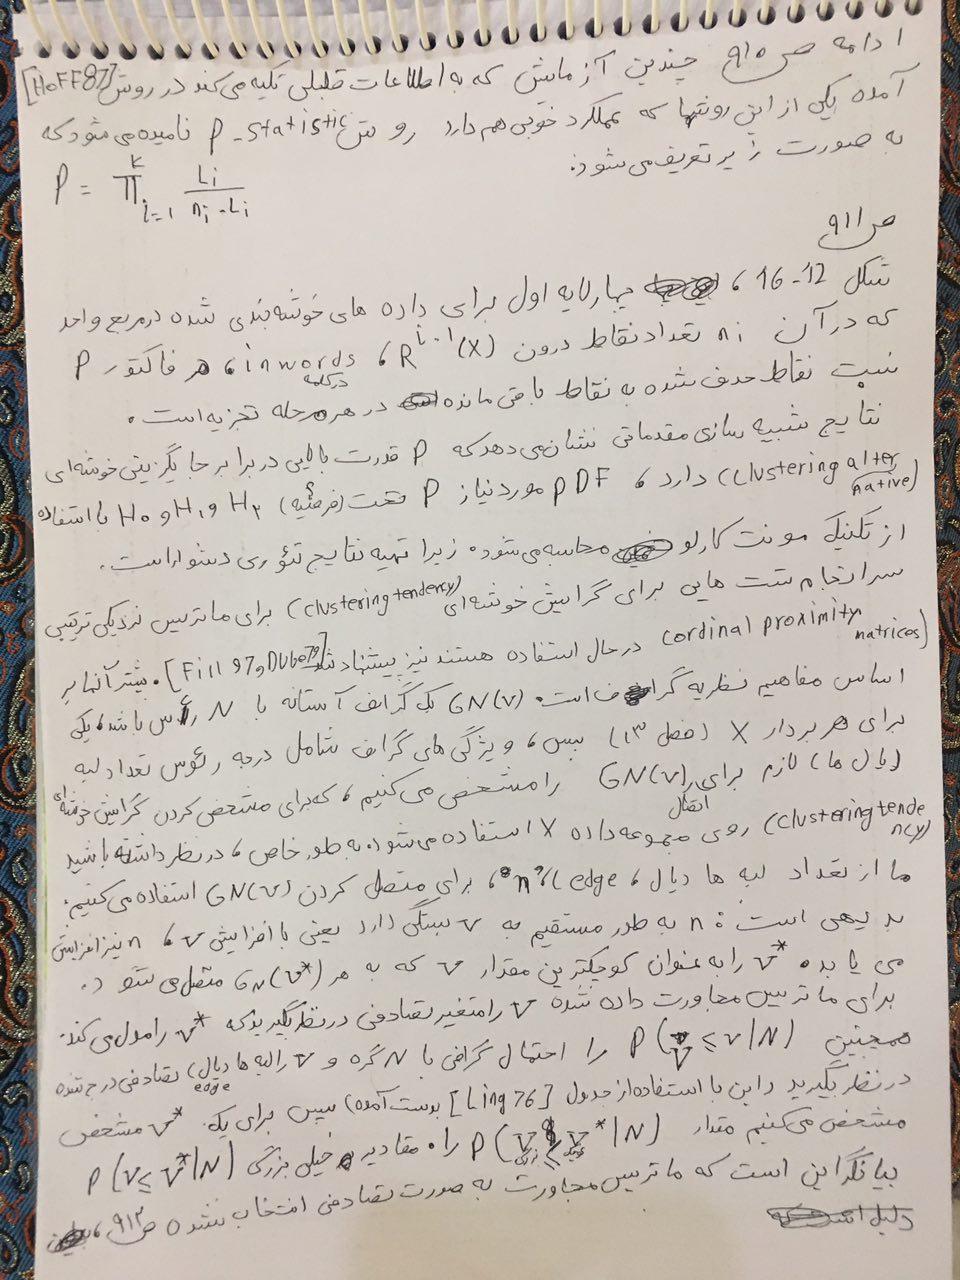 ادامه ص ۹۱۰ چندین آزمایش که به اطلاعات قبلی تکیه می کند در روش [HoFF87]
آمده یکی از این روشها که عملکرد خوبی هم دارد روش P-statistic نامیده می شود که
به صورت زیر تعریف می شود:
P = ∏ᵏᵢ₌₁ Li / ni - Li
ص ۹۱۱
شکل 12-16، چهار لایه اول برای داده های خوشه بندی شده در مربع واحد
که در آن ni تعداد نقاط درون R^{i-1}(X)، in words، هر فاکتور P
در کلمه
نسبت نقاط حذف شده به نقاط باقی مانده در هر مرحله تجزیه است.
نتایج شبیه سازی مقدماتی نشان می دهد که P قدرت بالایی در برابر جایگزینی خوشه ای
(clustering alternative) دارد، PDF مورد نیاز P تحت (فرضیه) H₂ و H₁ و H₀ با استفاده
از تکنیک مونت کارلو محاسبه می شود. زیرا تهیه نتایج تئوری دشوار است.
سرانجام تست هایی برای گرایش خوشه ای (clustering tendency) برای ماتریس نزدیکی ترتیبی
(ordinal proximity matrices) در حال استفاده هستند نیز پیشنهاد شد [Fill 97, Dubo79]. بیشتر آنها بر
اساس مفاهیم نظریه گراف است. GN(v) یک گراف آستانه با N رأس باشد، یکی
برای هر بردار X (فصل ۱۳) سپس، ویژگی های گراف شامل درجه رئوس تعداد لبه
(یال ها) لازم برای اتصال GN(v) را مشخص می کنیم، که برای مشخص کردن گرایش خوشه ای
(clustering tendency) روی مجموعه داده X استفاده می شود. به طور خاص، در نظر داشته باشید
ما از تعداد لبه ها (یال، edge)، "n"، برای متصل کردن GN(v) استفاده می کنیم.
بدیهی است: n به طور مستقیم به v بستگی دارد یعنی با افزایش v، n نیز افزایش
می یابد. v* را به عنوان کوچکترین مقدار v که به هر GN(v*) متصل می شود.
برای ماتریس مجاورت داده شده v را متغیر تصادفی در نظر بگیرید که v* را مدل می کند.
همچنین P(V ≤ v|N) را احتمال گرافی با N گره و v را لبه ها (یال edge) تصادفی درج شده
در نظر بگیرید (این با استفاده از جدول [Ling76] بدست آمده) سپس برای یک v* مشخص
مشخص می کنیم مقدار P(V ≤ v*|N) را. مقادیر خیلی بزرگ P(v ≤ v*|N)
بیانگر این است که ماتریس مجاورت به صورت تصادفی انتخاب نشده ص ۹۱۲